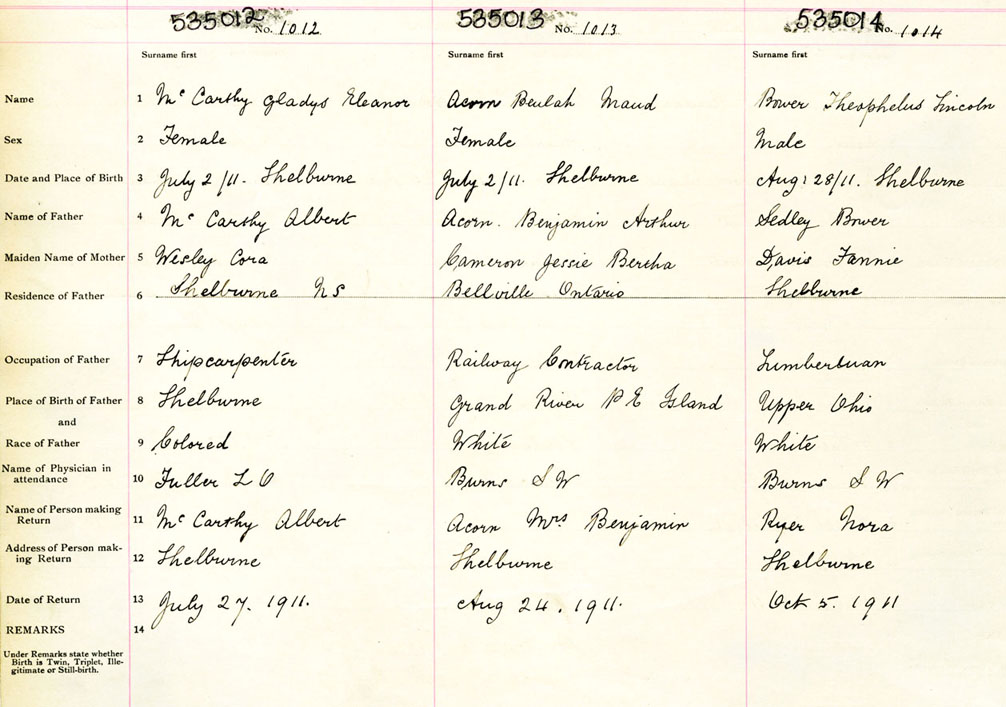 535012 No. 1012 535013 No. 1013 535014 No. 1014
Surname first Surname first Surname first
Name 1 Mc Carthy Gladys Eleanor Acorn Beulah Maud Bower Theophelus Lincoln
Sex 2 Female Female Male
Date and Place of Birth 3 July 2/11. Shelburne July 2/11. Shelburne Aug: 28/11. Shelburne
Name of Father 4 Mc Carthy Albert Acorn. Benjamin Arthur Sedley Bower
Maiden Name of Mother 5 Wesley Cora Cameron Jessie Bertha Davis Fannie
Residence of Father 6 Shelburne NS Bellville Ontario Shelburne
Occupation of Father 7 Shipcarpenter Railway Contractor Lumberman
Place of Birth of Father 8 Shelburne Grand River P E Island Upper Ohio
and
Race of Father 9 Colored White White
Name of Physician in
attendance 10 Fuller L O Burns I W Burns I W
Name of Person making
Return 11 Mc Carthy Albert Acorn Mrs Benjamin Ryer Nora
Address of Person mak-
ing Return 12 Shelburne Shelburne Shelburne
Date of Return 13 July 27, 1911. Aug 24, 1911. Oct 5. 1911
REMARKS 14
Under Remarks state whether
Birth is Twin, Triplet, Ille-
gitimate or Still-birth.